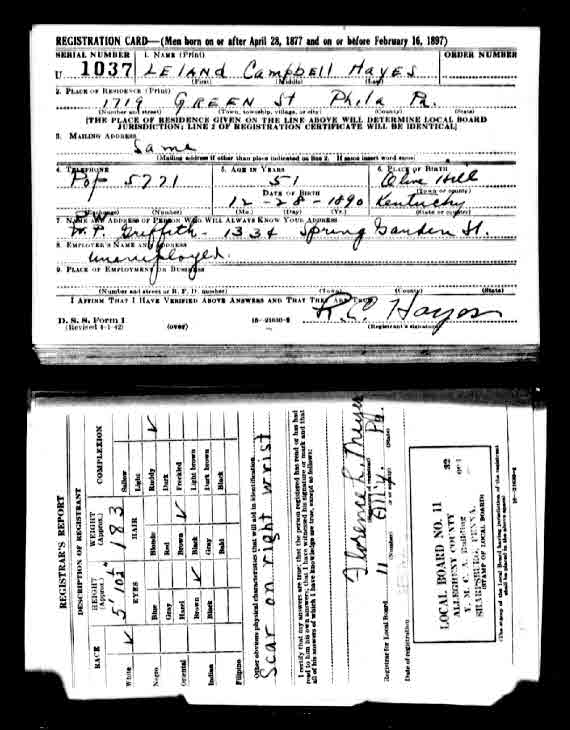 REGISTRATION CARD—(Men born on or after April 28, 1877 and on or before February 16, 1897)
SERIAL NUMBER 1. NAME (Print) ORDER NUMBER
U 1037 LELAND Campbell HAYES
(First) (Middle) (Last)
2. PLACE OF RESIDENCE (Print)
1719 GREEN St Phila Pa.
(Number and street) (Town, township, village, or city) (County) (State)
[THE PLACE OF RESIDENCE GIVEN ON THE LINE ABOVE WILL DETERMINE LOCAL BOARD
JURISDICTION; LINE 2 OF REGISTRATION CERTIFICATE WILL BE IDENTICAL]
3. MAILING ADDRESS
Same
(Mailing address if other than place indicated on line 2. If same insert word same)
4. TELEPHONE 5. AGE IN YEARS 6. PLACE OF BIRTH
Pop 5771 51 Olive Hill
(Town or county)
DATE OF BIRTH
12-28-1890 Kentucky
(Exchange) (Number) (Mo.) (Day) (Yr.) (State or country)
7. NAME AND ADDRESS OF PERSON WHO WILL ALWAYS KNOW YOUR ADDRESS
W. P. Griffith - 1334 Spring Garden St.
8. EMPLOYER'S NAME AND ADDRESS
unemployed.
9. PLACE OF EMPLOYMENT OR BUSINESS
(Number and street or R. F. D. number) (Town) (County) (State)
I AFFIRM THAT I HAVE VERIFIED ABOVE ANSWERS AND THAT THEY ARE TRUE.
D. S. S. Form 1
(Revised 4-1-42) (over) 16—21630-2 Hayes
(Registrant's signature)
REGISTRAR'S REPORT
DESCRIPTION OF REGISTRANT
RACE HEIGHT (Approx.) WEIGHT (Approx.) COMPLEXION
5' 10½" 183
White ✓ EYES HAIR Sallow
Light
Negro Blue Blonde Ruddy ✓
Gray Red Dark
Oriental Hazel Brown ✓ Freckled
Brown ✓ Black Light brown
Indian Black Gray Dark brown
Bald Black
Filipino
Other obvious physical characteristics that will aid in identification
Scar on right wrist
I certify that my answers are true; that the person registered has read or has had
read to him his own answers; that I have witnessed his signature or mark and that
all of his answers of which I have knowledge are true, except as follows:
Florence L. Meyer
Registrar for Local Board 11 Pa.
(Number) (State)
Date of registration
LOCAL BOARD NO. 11 32
ALLEGHENY COUNTY
Y. M. C. A. Building
SHARPSBURG, PENNA.
(STAMP OF LOCAL BOARD)
(The stamp of the Local Board having jurisdiction of the registrant
shall be placed in the above space)